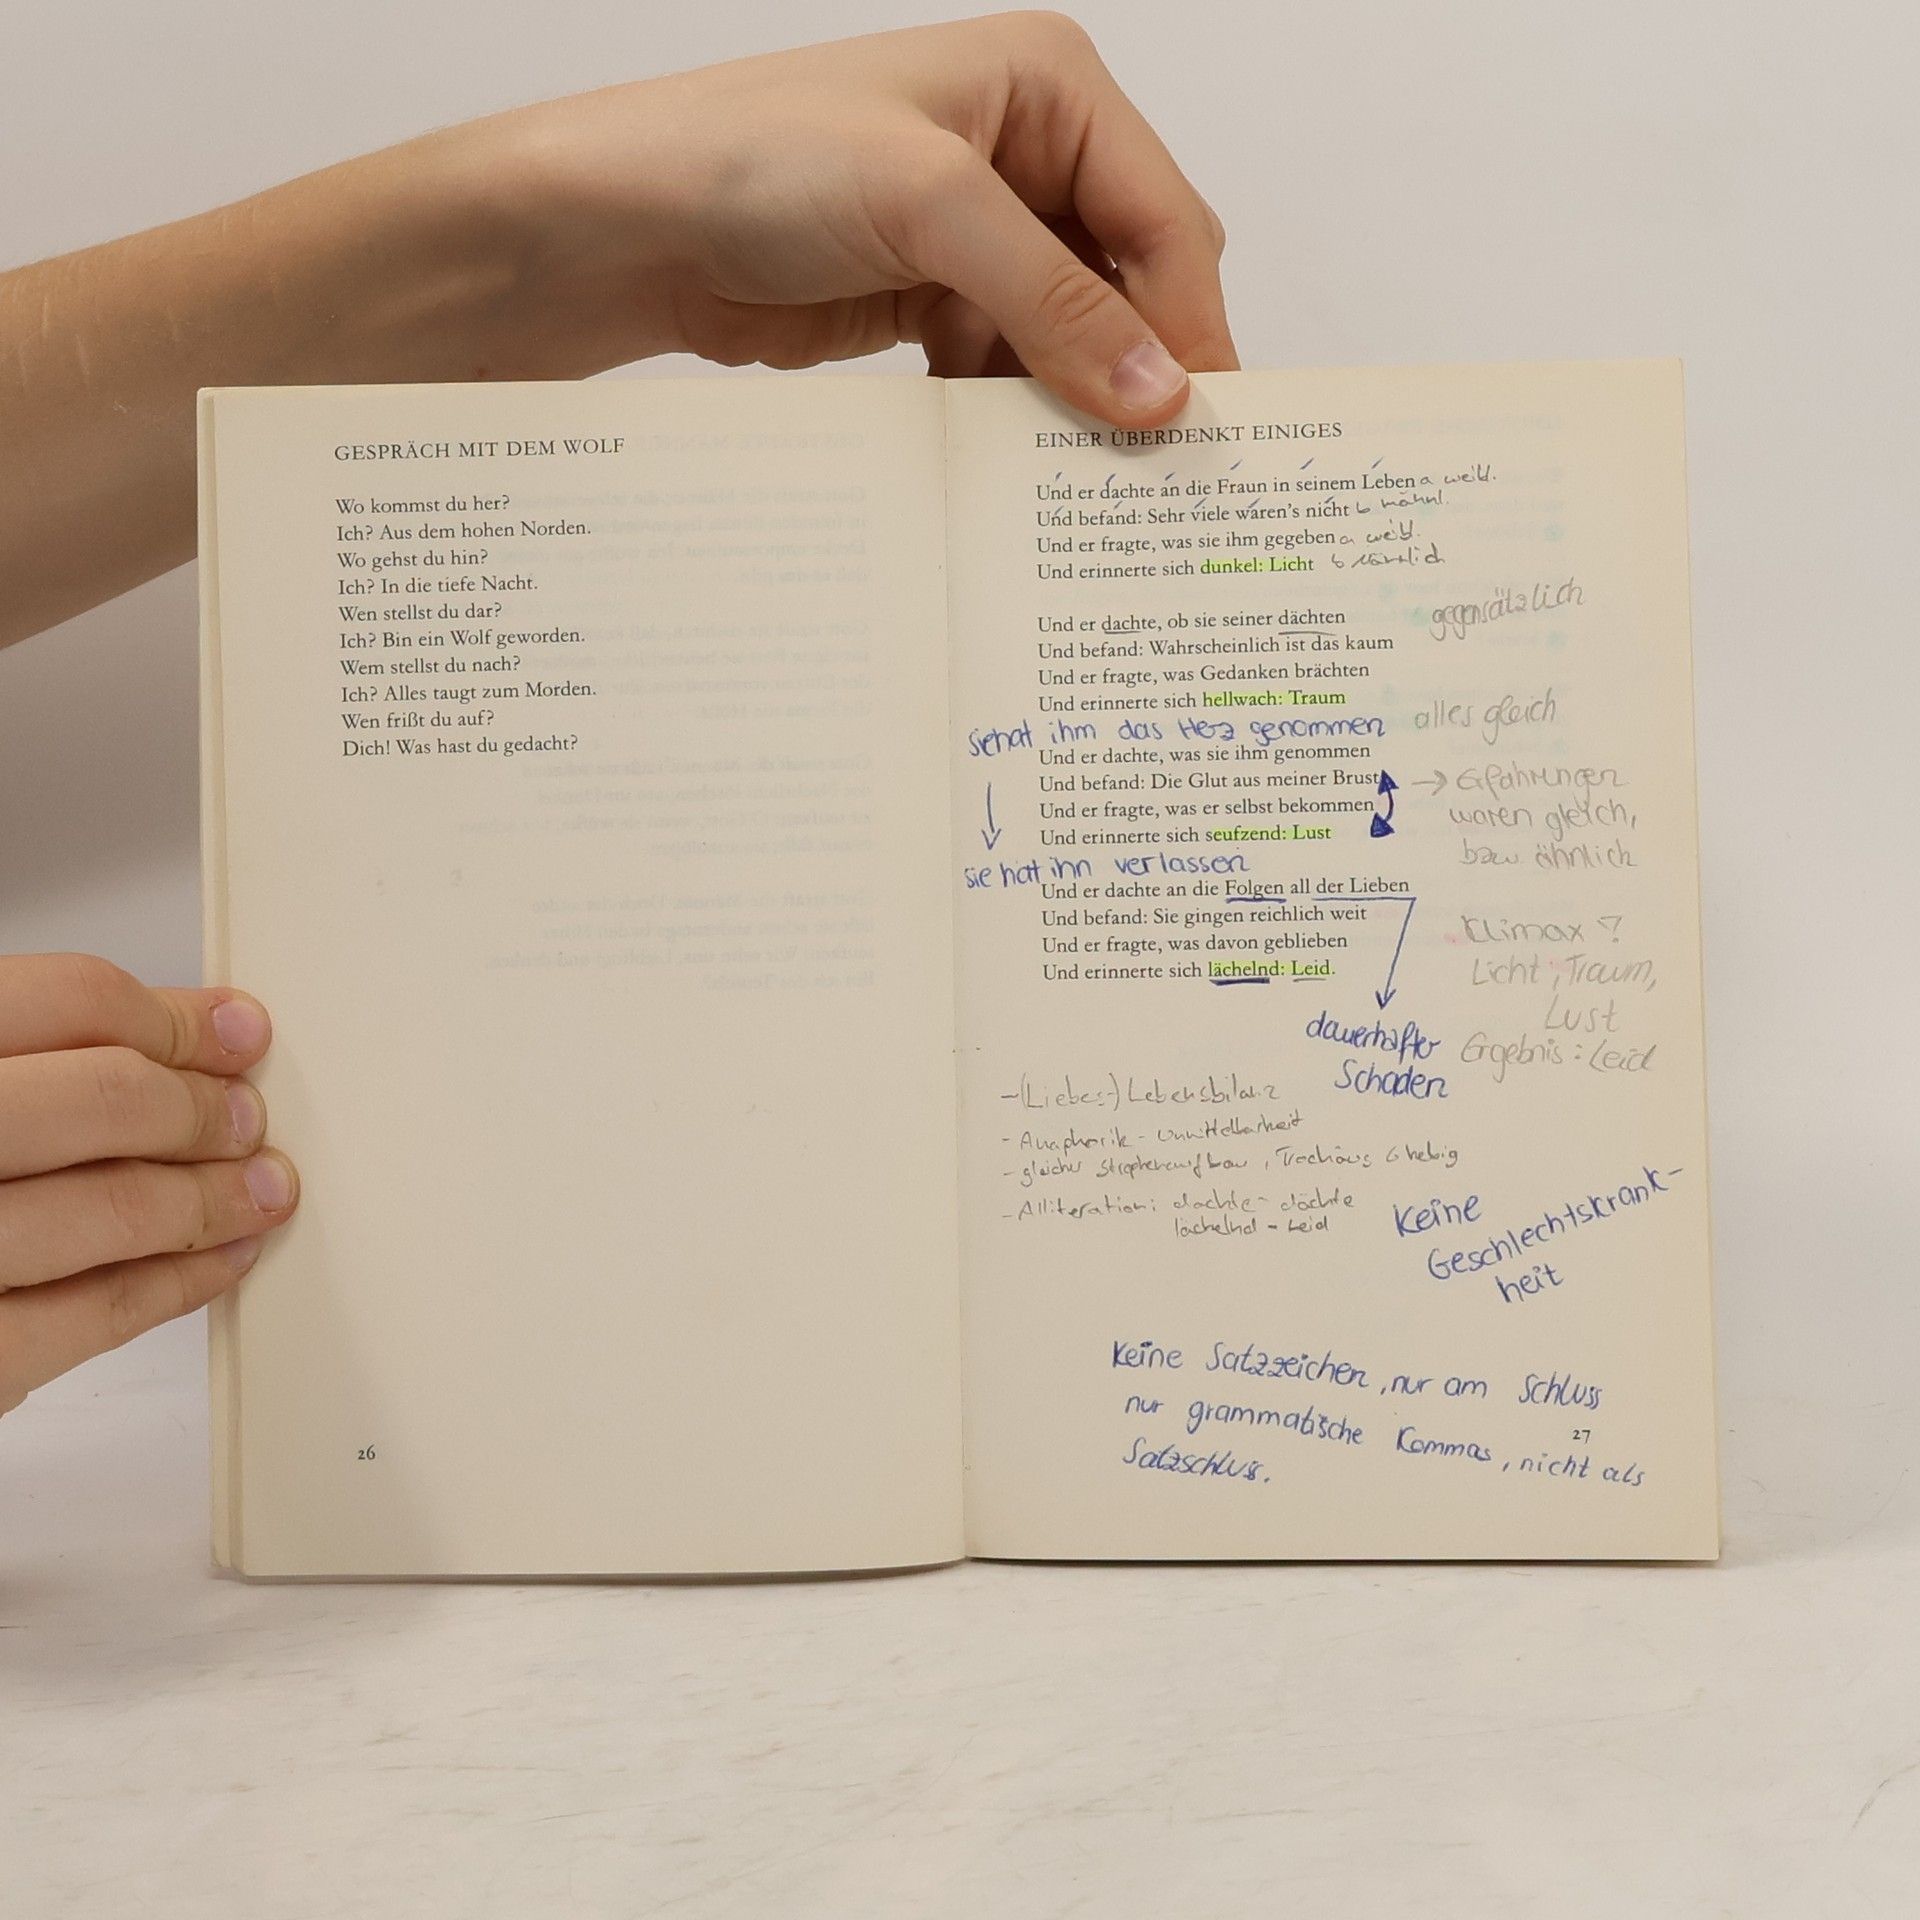 GESPRÄCH MIT DEM WOLF
Wo kommst du her?
Ich? Aus dem hohen Norden.
Wo gehst du hin?
Ich? In die tiefe Nacht.
Wen stellst du dar?
Ich? Bin ein Wolf geworden.
Wem stellst du nach?
Ich? Alles taugt zum Morden.
Wen frißt du auf?
Dich! Was hast du gedacht?
26
EINER ÜBERDENKT EINIGES
Und er dachte an die Fraun in seinem Leben a weibl.
Und befand: Sehr viele waren's nicht b männl.
Und er fragte, was sie ihm gegeben a weibl.
Und erinnerte sich dunkel: Licht b
gegensätzlich
Und er dachte, ob sie seiner dächten
Und befand: Wahrscheinlich ist das kaum
Und er fragte, was Gedanken brächten
Und erinnerte sich hellwach: Traum
alles gleich
sie hat ihm das Herz genommen
Und er dachte, was sie ihm genommen
Und befand: Die Glut aus meiner Brust
→ Erfahrungen
waren gleich,
bzw. ähnlich
Und er fragte, was er selbst bekommen
Und erinnerte sich seufzend: Lust
sie hat ihn verlassen
Und er dachte an die Folgen all der Lieben
Und befand: Sie gingen reichlich weit
Und er fragte, was davon geblieben
Und erinnerte sich lächelnd: Leid.
Klimax?
Licht, Traum,
Lust
Ergebnis: Leid
dauerhafter
Schaden
-(Liebes-) Lebensbilanz
- Anaphorik - Unmittelbarkeit
- gleicher Strophenaufbau, Trochäus 6 hebig
- Alliteration: dachte - dächte
lächelnd - Leid
Keine
Geschlechtskrank-
heit
Keine Satzzeichen, nur am Schluss
nur grammatische Kommas, nicht als
Satzschluss.
27